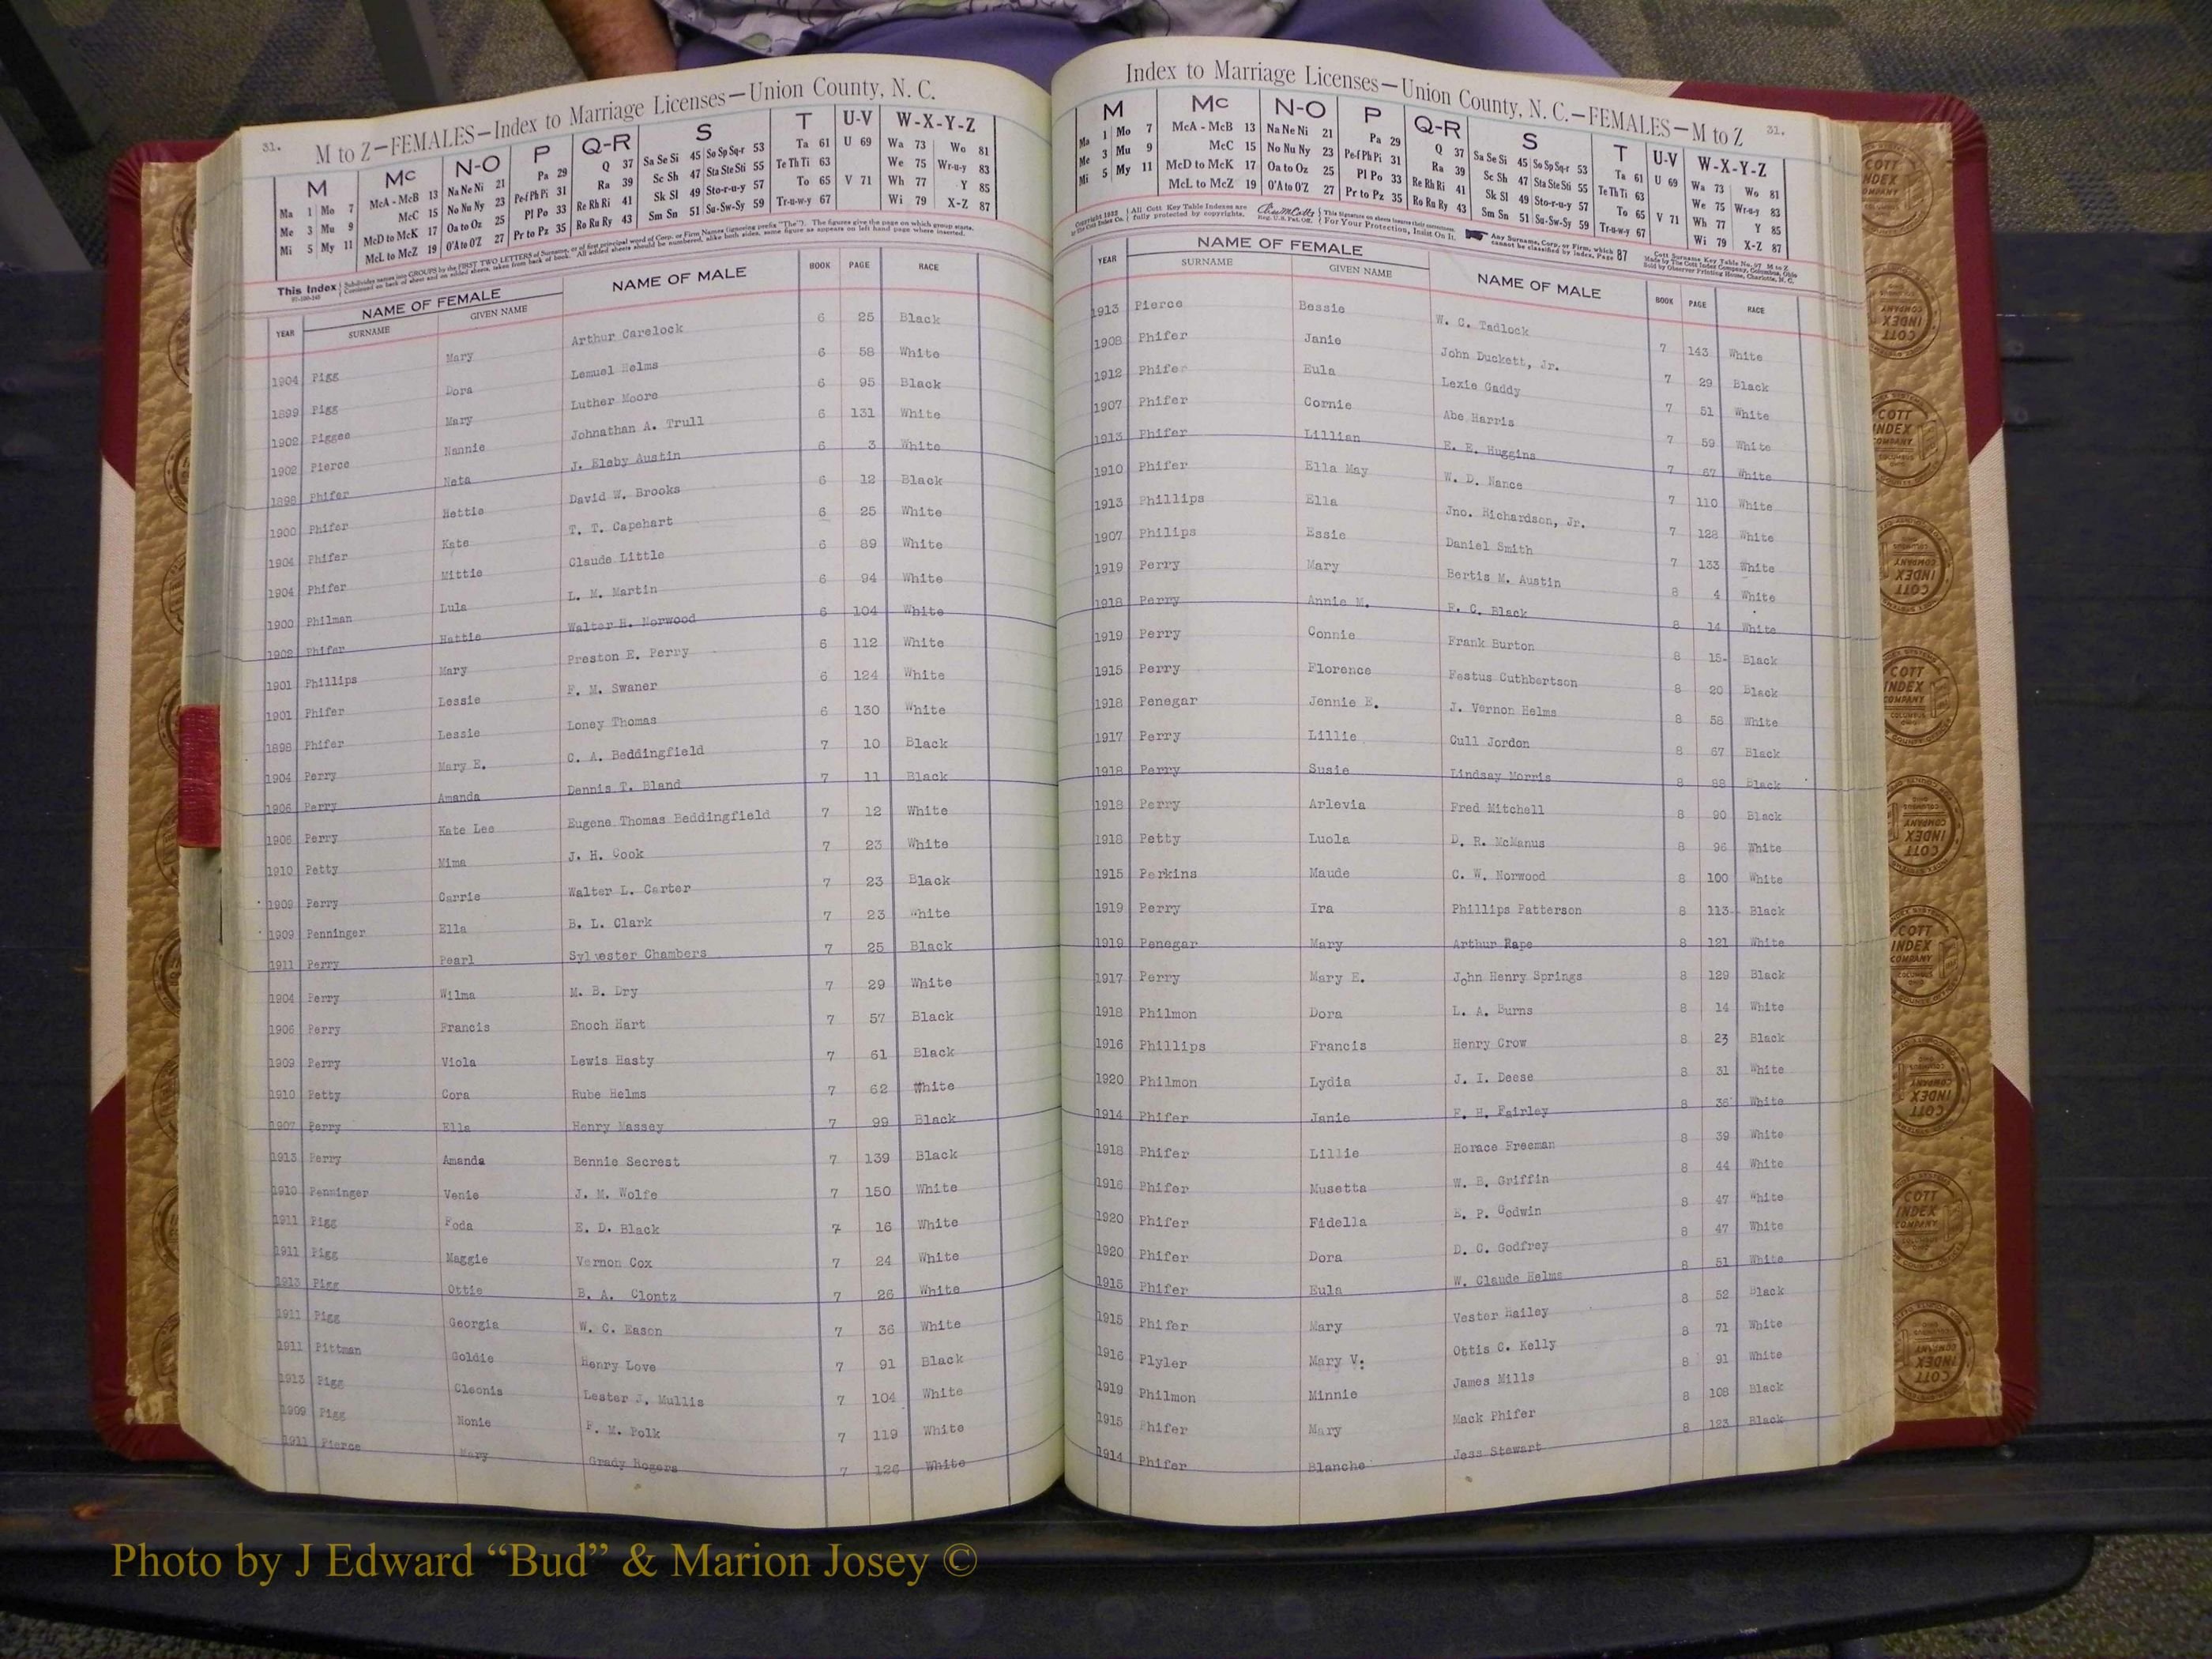 31. M to Z—FEMALES—Index to Marriage Licenses—Union County, N. C.
M Mc N-O P Q-R S T U-V W-X-Y-Z
Ma 1 Mo 7 McA - McB 13 Na Ne Ni 21 Pa 29 Q 37 Sa Se Si 45 So Sp Sq-r 53 Ta 61 U 69 Wa 73 Wo 81
Me 3 Mu 9 McC 15 No Nu Ny 23 Pe-f Ph Pi 31 Ra 39 Sc Sh 47 Sta Ste Sti 55 Te Th Ti 63 We 75 Wr-u-y 83
Mi 5 My 11 McD to McK 17 Oa to Oz 25 Pl Po 33 Re Rh Ri 41 Sk Sl 49 Sto-r-u-y 57 To 65 V 71 Wh 77 Y 85
McL to McZ 19 O'A to O'Z 27 Pr to Pz 35 Ro Ru Ry 43 Sm Sn 51 Su-Sw-Sy 59 Tr-u-w-y 67 Wi 79 X-Z 87
This Index Subdivides names into GROUPS by the FIRST TWO LETTERS of Surname, or of first principal word of Corp. or Firm Names (ignoring prefix "The"). The figures give the page on which group starts.
Continued on back of sheet and on added sheets, taken from back of book. All added sheets should be numbered, alike both sides, same figure as appears on left hand page where inserted.
YEAR NAME OF FEMALE SURNAME GIVEN NAME NAME OF MALE BOOK PAGE RACE
1904 Pigg Mary Arthur Carelock 6 25 Black
1899 Pigg Dora Lemuel Helms 6 58 White
1902 Piggee Mary Luther Moore 6 95 Black
1902 Pierce Nannie Johnathan A. Trull 6 131 White
1898 Phifer Neta J. Eleby Austin 6 3 White
1900 Phifer Hettie David W. Brooks 6 12 Black
1904 Phifer Kate T. T. Capehart 6 25 White
1904 Phifer Mittie Claude Little 6 89 White
1900 Philman Lula L. M. Martin 6 94 White
1902 Phifer Hattie Walter H. Norwood 6 104 White
1901 Phillips Mary Preston E. Perry 6 112 White
1901 Phifer Lessie F. M. Swaner 6 124 White
1898 Phifer Lessie Loney Thomas 6 130 White
1904 Perry Mary E. C. A. Beddingfield 7 10 Black
1906 Perry Amanda Dennis T. Bland 7 11 Black
1906 Perry Kate Lee Eugene Thomas Beddingfield 7 12 White
1910 Petty Mima J. H. Cook 7 23 White
1909 Perry Carrie Walter L. Carter 7 23 Black
1909 Penninger Ella B. L. Clark 7 23 White
1911 Perry Pearl Sylvester Chambers 7 25 Black
1904 Perry Wilma M. B. Dry 7 29 White
1906 Perry Francis Enoch Hart 7 57 Black
1909 Perry Viola Lewis Hasty 7 61 Black
1910 Petty Cora Rube Helms 7 62 White
1907 Perry Ella Henry Massey 7 99 Black
1913 Perry Amanda Bennie Secrest 7 139 Black
1910 Penninger Venie J. M. Wolfe 7 150 White
1911 Pigg Foda E. D. Black 7 16 White
1911 Pigg Maggie Vernon Cox 7 24 White
1913 Pigg Ottie B. A. Clontz 7 26 White
1911 Pigg Georgia W. C. Eason 7 36 White
1911 Pittman Goldie Henry Love 7 91 Black
1913 Pigg Cleonis Lester J. Mullis 7 104 White
1909 Pigg Nonie F. M. Polk 7 119 White
1911 Pierce Mary Grady Rogers 7 126 White
Index to Marriage Licenses—Union County, N. C.—FEMALES—M to Z 31.
M Mc N-O P Q-R S T U-V W-X-Y-Z
Ma 1 Mo 7 McA - McB 13 Na Ne Ni 21 Pa 29 Q 37 Sa Se Si 45 So Sp Sq-r 53 Ta 61 U 69 Wa 73 Wo 81
Me 3 Mu 9 McC 15 No Nu Ny 23 Pe-f Ph Pi 31 Ra 39 Sc Sh 47 Sta Ste Sti 55 Te Th Ti 63 We 75 Wr-u-y 83
Mi 5 My 11 McD to McK 17 Oa to Oz 25 Pl Po 33 Re Rh Ri 41 Sk Sl 49 Sto-r-u-y 57 To 65 V 71 Wh 77 Y 85
McL to McZ 19 O'A to O'Z 27 Pr to Pz 35 Ro Ru Ry 43 Sm Sn 51 Su-Sw-Sy 59 Tr-u-w-y 67 Wi 79 X-Z 87
All Cott Key Table Indexes are fully protected by copyrights.
For Your Protection, Insist On It.
Any Surname, Corp. or Firm, which cannot be classified by Index, Page 87
Made by The Cott Index Company, Columbus, Ohio
Sold by Observer Printing House, Charlotte, N. C.
YEAR NAME OF FEMALE SURNAME GIVEN NAME NAME OF MALE BOOK PAGE RACE
1913 Pierce Bessie W. C. Tadlock 7 143 White
1908 Phifer Janie John Duckett, Jr. 7 29 Black
1912 Phifer Eula Lexie Gaddy 7 51 White
1907 Phifer Cornie Abe Harris 7 59 White
1913 Phifer Lillian E. E. Huggins 7 67 White
1910 Phifer Ella May W. D. Nance 7 110 White
1913 Phillips Ella Jno. Richardson, Jr. 7 128 White
1907 Philips Essie Daniel Smith 7 133 White
1919 Perry Mary Bertis M. Austin 8 4 White
1918 Perry Annie M. R. C. Black 8 14 White
1919 Perry Connie Frank Burton 8 15 Black
1915 Perry Florence Festus Cuthbertson 8 20 Black
1918 Penegar Jennie E. J. Vernon Helms 8 58 White
1917 Perry Lillie Cull Jordon 8 67 Black
1918 Perry Susie Lindsay Morris 8 88 Black
1918 Perry Arlevia Fred Mitchell 8 90 Black
1918 Petty Luola D. R. McManus 8 96 White
1915 Perkins Maude C. W. Norwood 8 100 White
1919 Perry Ira Phillips Patterson 8 113 Black
1919 Penegar Mary Arthur Rape 8 121 White
1917 Perry Mary E. John Henry Springs 8 129 Black
1918 Philmon Dora L. A. Burns 8 14 White
1916 Phillips Francis Henry Crow 8 23 Black
1920 Philmon Lydia J. I. Deese 8 31 White
1914 Phifer Janie F. H. Fairley 8 36 White
1918 Phifer Lillie Horace Freeman 8 39 White
1916 Phifer Musetta W. B. Griffin 8 44 White
1920 Phifer Fidella E. P. Godwin 8 47 White
1920 Phifer Dora D. C. Godfrey 8 47 White
1915 Phifer Eula W. Claude Helms 8 51 White
1915 Phifer Mary Vester Hailey 8 52 Black
1916 Plyler Mary V. Ottis C. Kelly 8 71 White
1919 Philmon Minnie James Mills 8 91 White
1915 Phifer Mary Mack Phifer 8 108 Black
1914 Phifer Blanche Jess Stewart 8 123 Black
Photo by J Edward “Bud” & Marion Josey ©